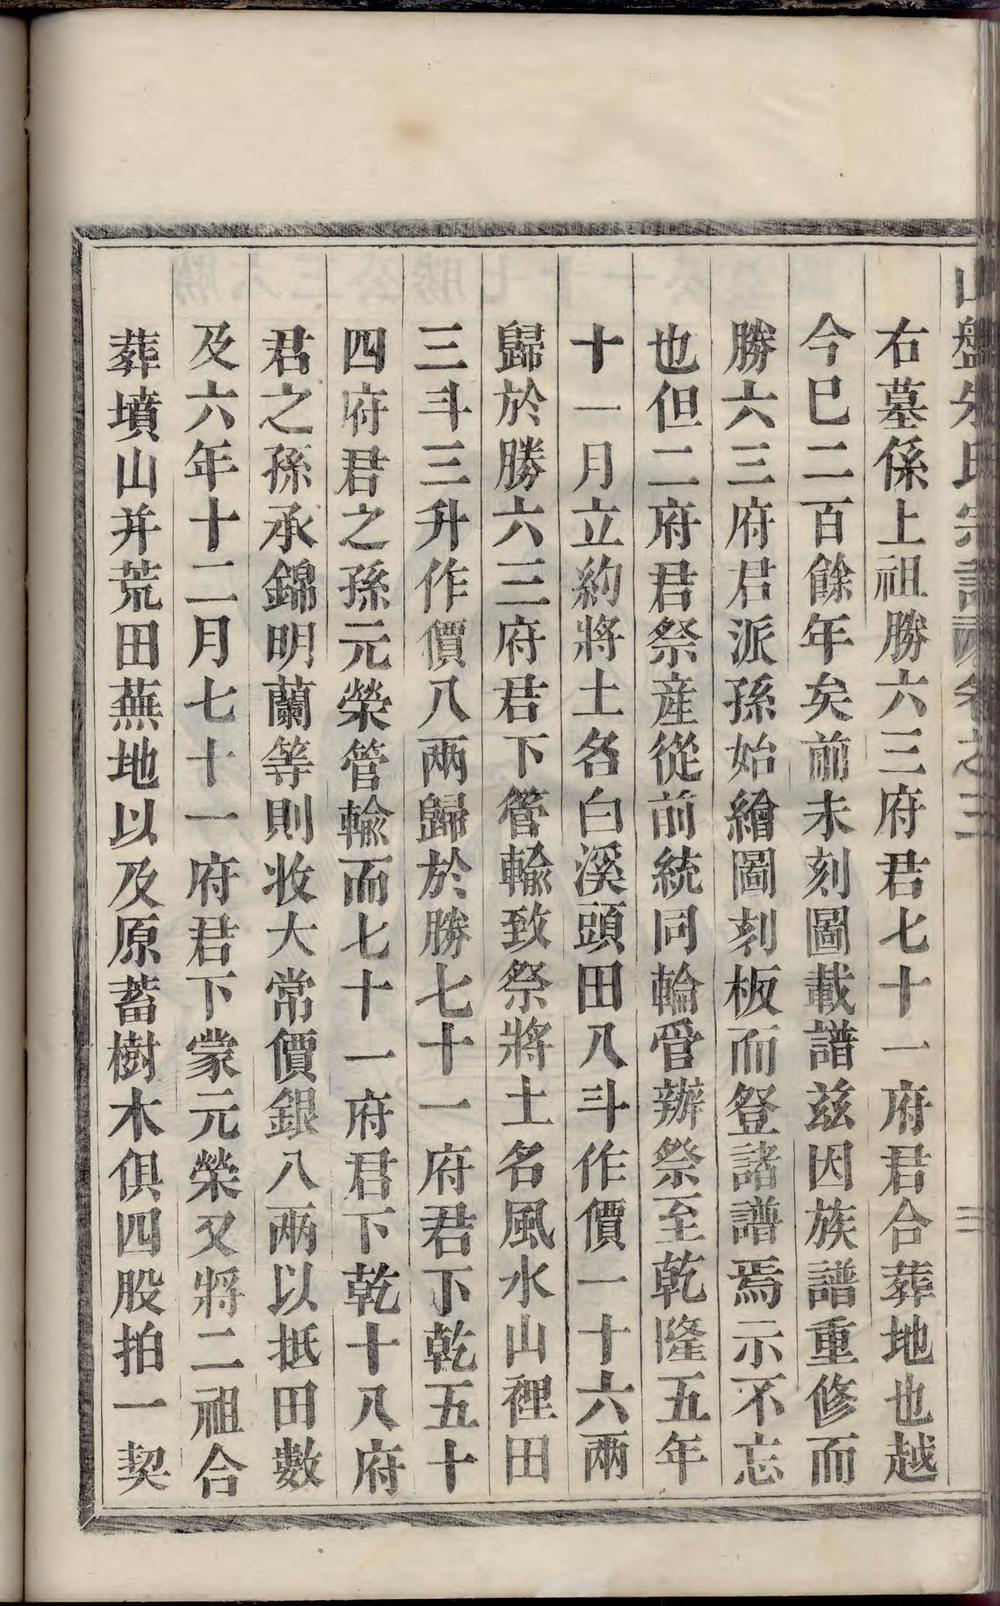 右墓係上祖勝六三府君七十一府君合葬地也越
今巳二百餘年矣前未刻圖載譜玆因族譜重修而
勝六三府君派孫始繪圖刻板而登諸譜焉示不忘
也但二府君祭産從前統同輪管辦祭至乾隆五年
十一月立約將土名白溪頭田八斗作價一十六兩
歸於勝六三府君下管輸致祭將土名風水山裡田
三斗三升作價八兩歸於勝七十一府君下乾五十
四府君之孫元榮管輸而七十一府君下乾十八府
君之孫承錦明蘭等則收大常價銀八兩以抵田數
及六年十二月七十一府君下蒙元榮又將二祖合
葬墳山并荒田蕪地以及原蓄樹木俱四股拍一契